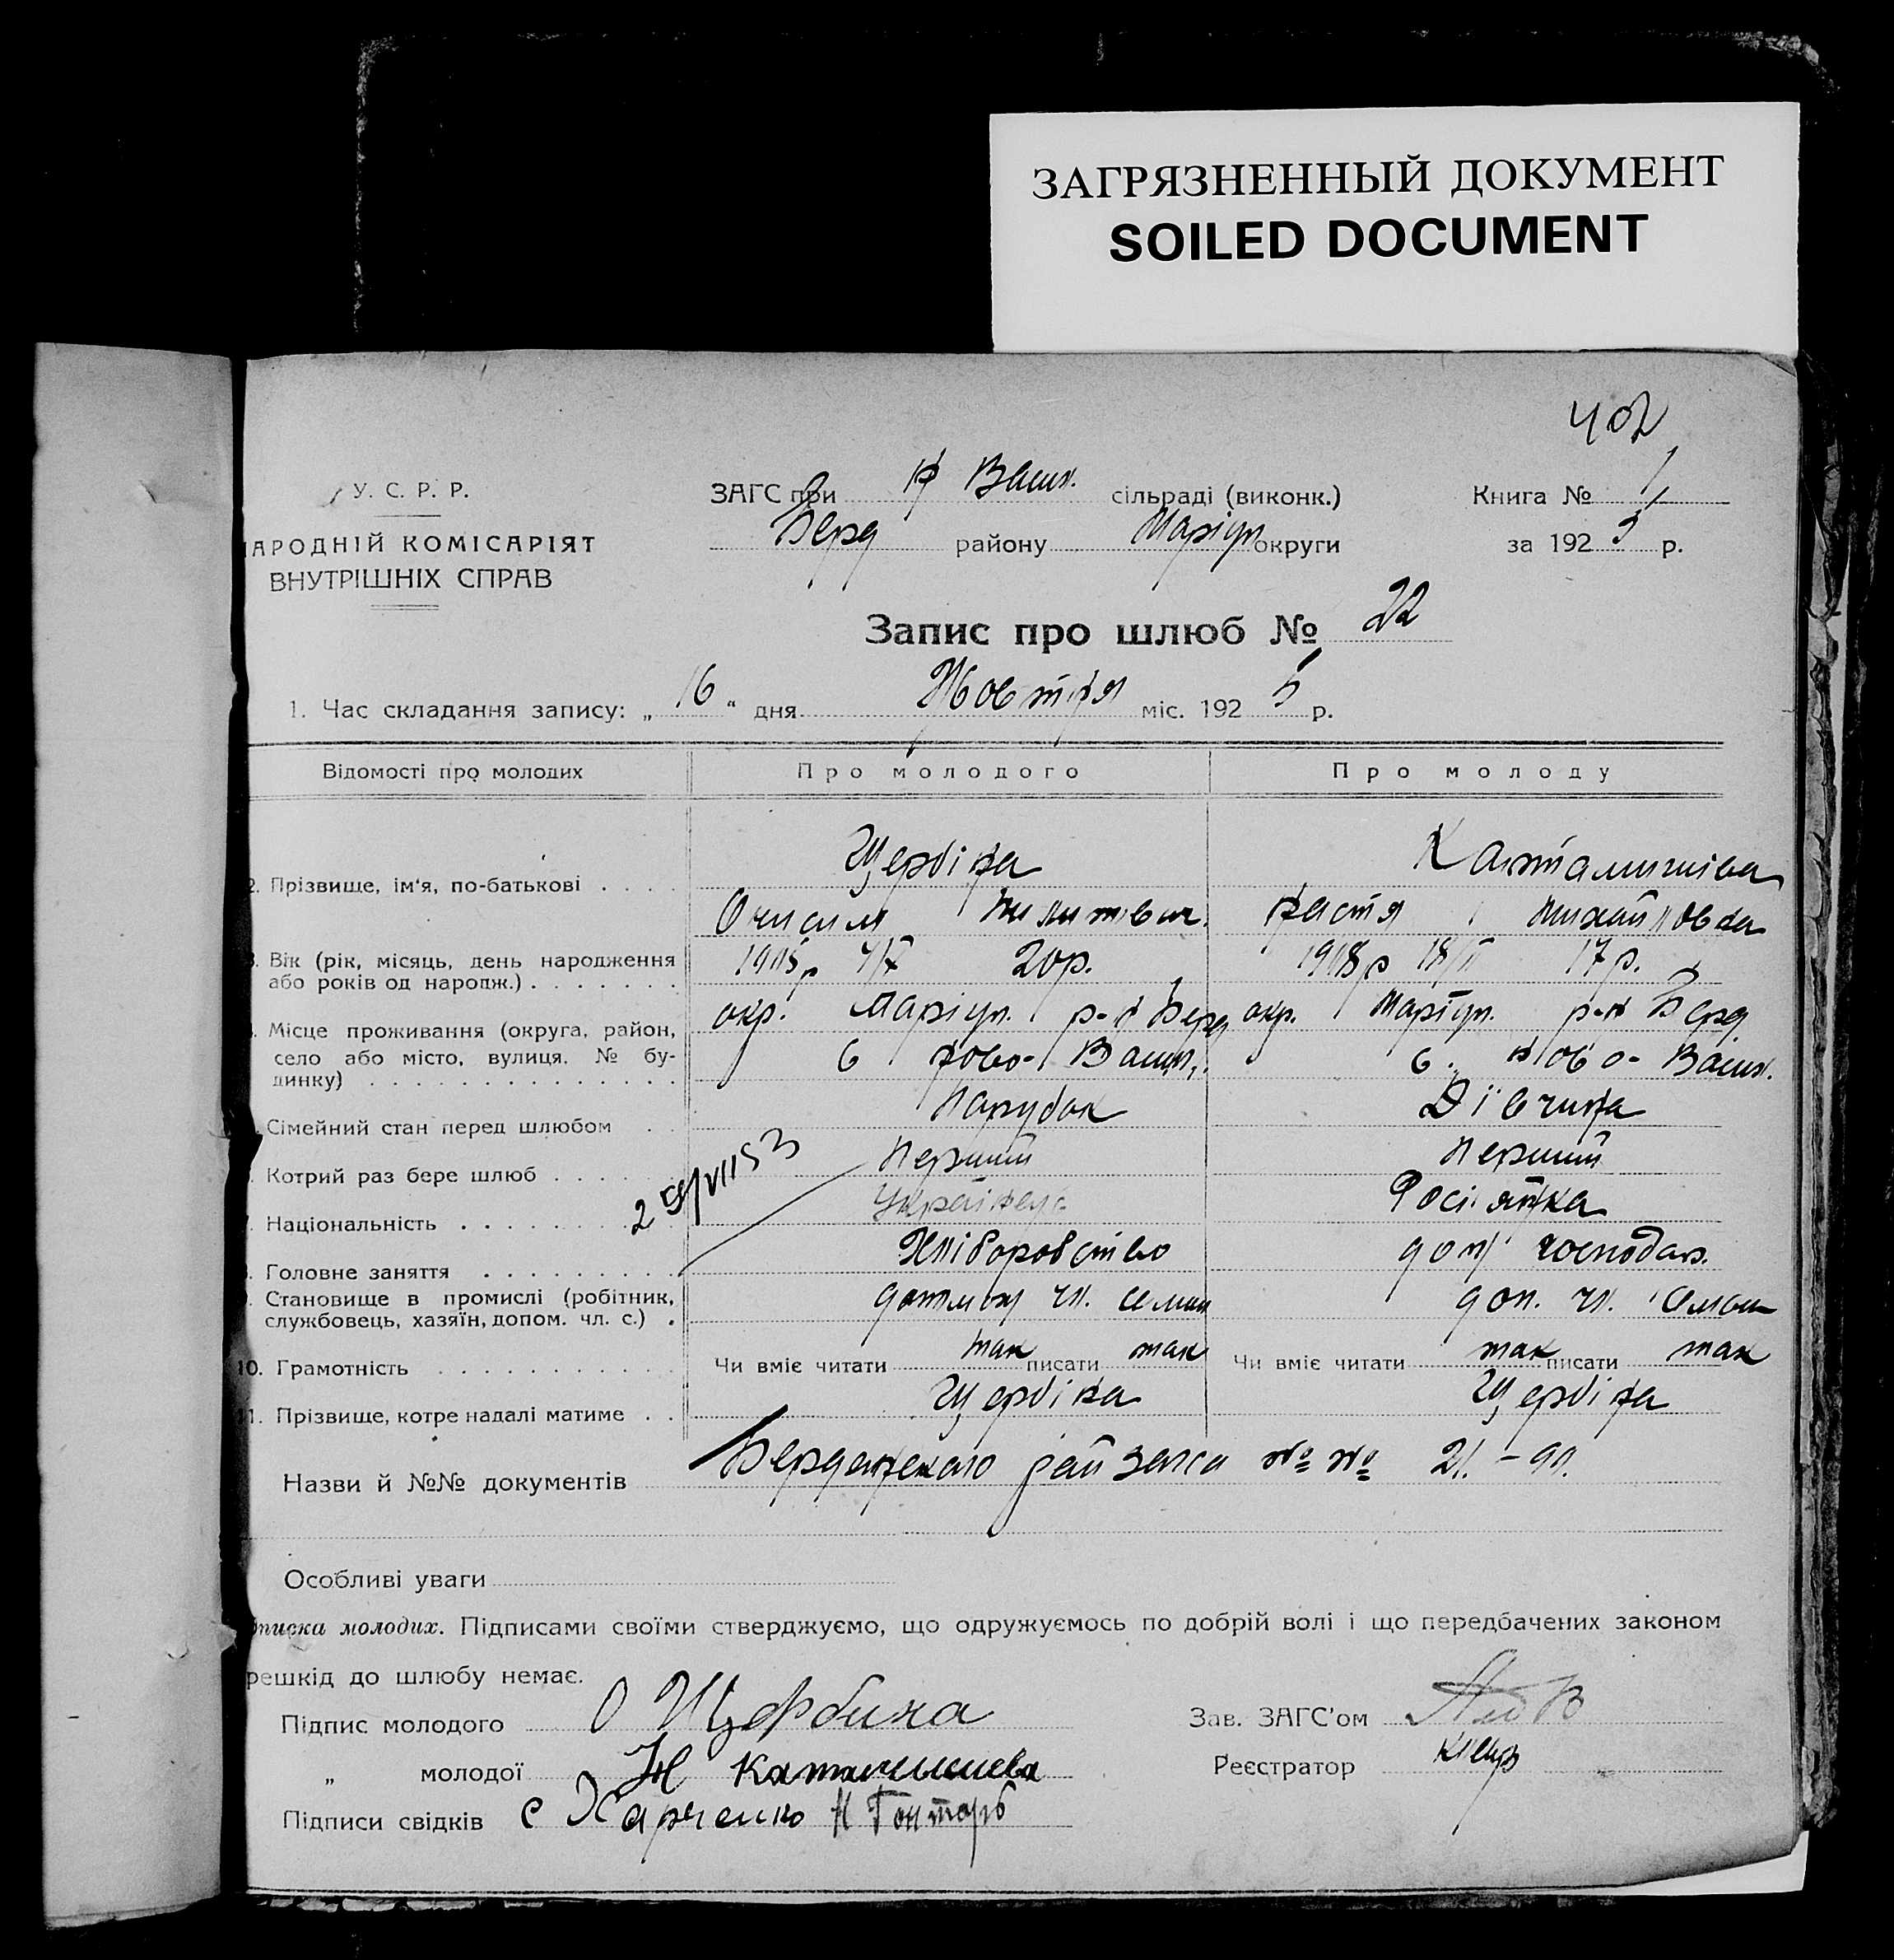 ЗАГРЯЗНЕННЫЙ ДОКУМЕНТ
SOILED DOCUMENT
402
У. С. Р. Р.
АРОДНІЙ КОМІСАРІЯТ
ВНУТРІШНІХ СПРАВ
ЗАГС при Н Васил. сільраді (виконк.)
Берд району Маріуп округи
Книга № 1
за 1925 р.
Запис про шлюб № 22
1. Час складання запису: „ 16 " дня Жовтня міс. 1925 р.
Відомості про молодих Про молодого Про молоду
2. Прізвище, ім'я, по-батькові . . . .
Щербіна
Онисим Никитович
Катамишіва
Настя Михайловна
Вік (рік, місяць, день народження
або років од народж.) . . . . . . .
20р.
17 р.
Місце проживання (округа, район,
село або місто, вулиця. № бу-
динку) . . . . . . . . . . . . . .
окр. Маріуп. р-н Берд
с Ново-Васил.
окр. Маріуп. р-н Берд
с. Ново-Васил.
Сімейний стан перед шлюбом . .
Парубок
Дівчина
Котрий раз бере шлюб . . . . . .
Перший
Перший
Національність . . . . . . . . .
Українец
Росіянка
Головне заняття . . . . . . . . .
Хліборобство
дом господар.
Становище в промислі (робітник,
службовець, хазяїн, допом. чл. с.) .
чл. семи
доп. чл. семьи
10. Грамотність . . . . . . . . . . .
Чи вміє читати так писати так
Чи вміє читати так писати так
11. Прізвище, котре надалі матиме . .
Щербіна
Щербіна
Назви й №№ документів Бердянского райзагса №№
Особливі уваги
писка молодих. Підписами своїми стверджуємо, що одружуємось по добрій волі і що передбачених законом
решкід до шлюбу немає.
Підпис молодого О Щербина
„ молодої Н Катамишева
Підписи свідків С Харченко Н Гонтарь
Зав. ЗАГС'ом
Реєстратор